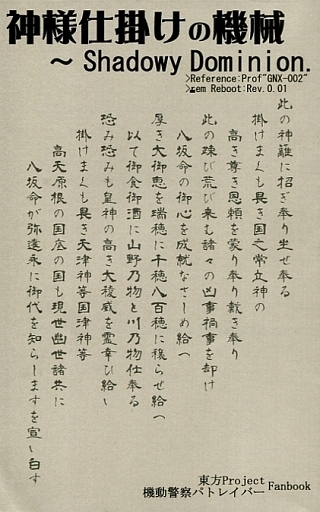 神様仕掛けの機械
～ Shadowy Dominion.
>Reference:Prof"GNX-002"
Reboot:Rev.0.01
此の神籬に招ぎ奉り坐せ奉る
掛けまくも畏き国之常立神の
高き尊き恩頼を蒙り奉り戴き奉り
此の疎び荒び来む諸々の凶事禍事を却け
八坂命の御心を成就なさしめ給へ
厚き大御恵を瑞穂に千穂八百穂に穣らせ給へ
以て御食御酒に山野乃物と川乃物仕奉る
恐み恐みも皇神の高き大稜威を霊幸ひ給い
掛けまくも畏き天津神等国津神等
高天原根の国底の国も現世幽世諸共に
八坂命が弥遠永に御代を知らしますを宣い白す
東方Project
機動警察パトレイバー Fanbook